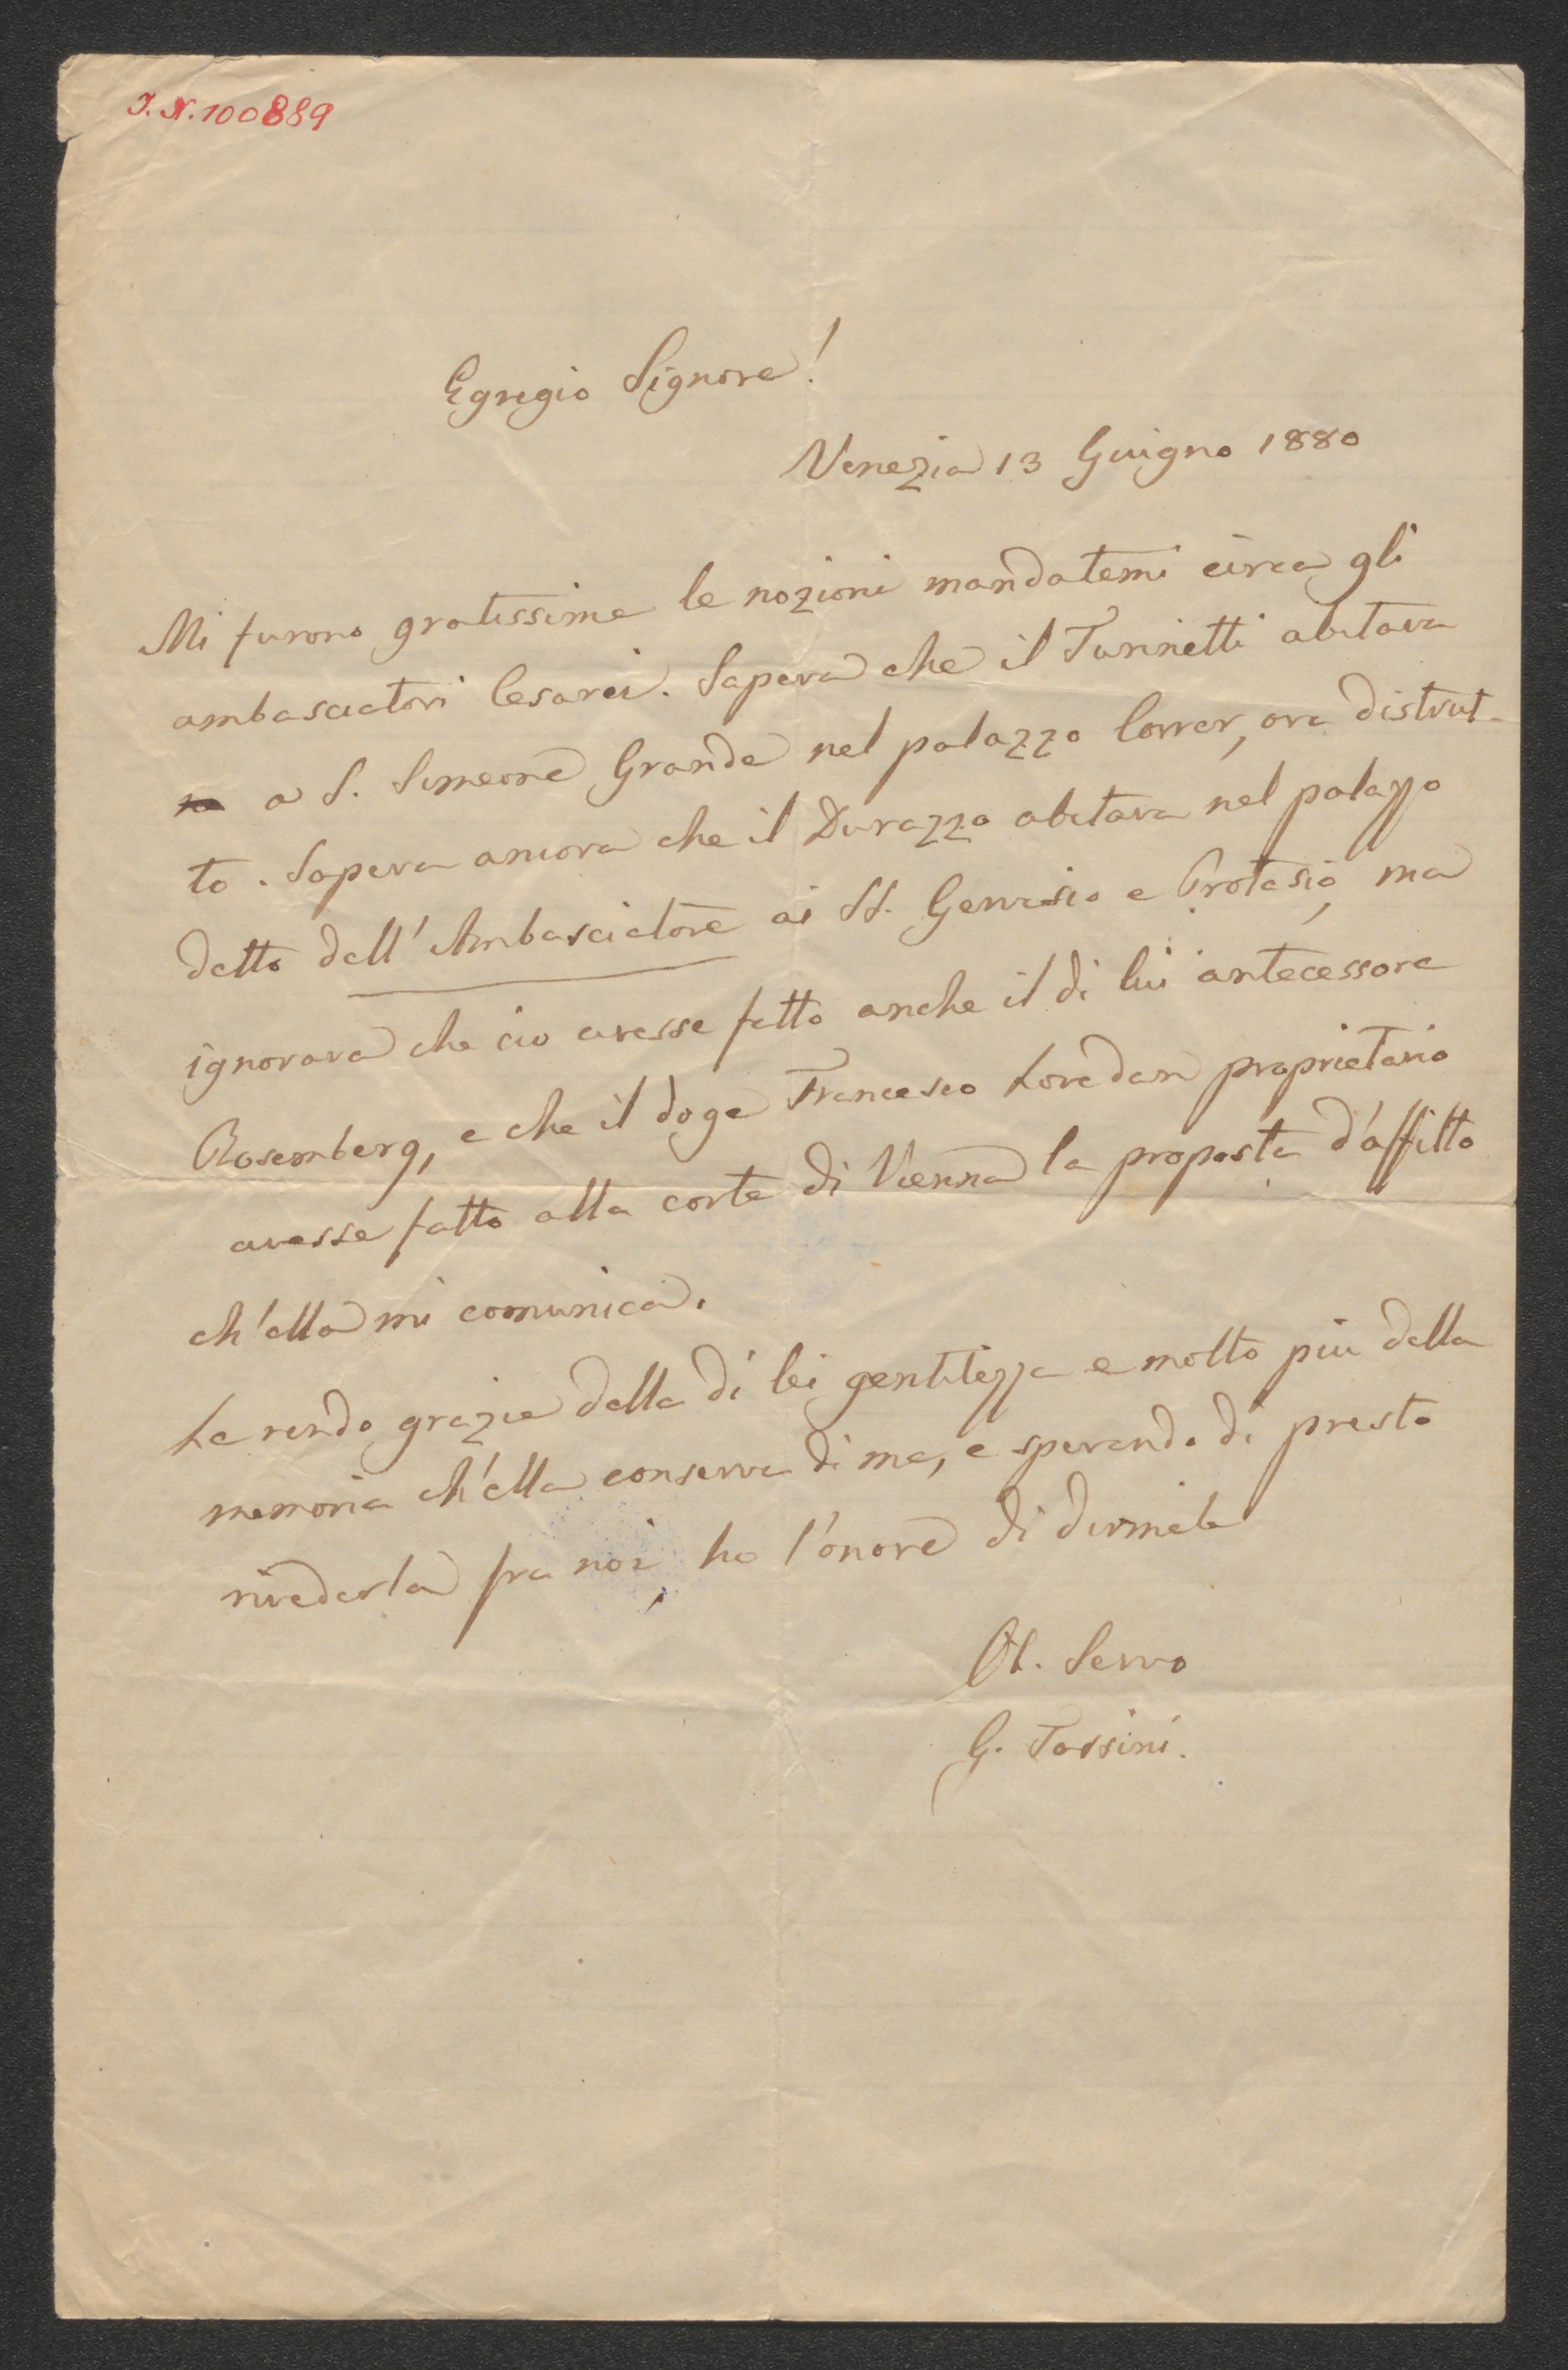 J. N. 100889
Egregio Signore!
Venezia 13 Giugno 1880
Mi furono gratissime le nozioni mandatemi circa gli
ambasciatori Cesarei. Sapeva che il Turinetti abitava
a S. Simeone Grande nel palazzo Correr, ora distrut-
to. Sapeva ancora che il Durazzo abitava nel palazzo
detto dell'Ambasciatore ai SS. Gervasio e Protasio, ma
ignorava che ciò avesse fatto anche il di lui antecessore
Rosemberg, e che il doge Francesco Loredan proprietario
avesse fatto alla corte di Vienna la proposta d'affitto
ch'ella mi comunica.
Le rendo grazie della di lei gentilezza e molto più della
memoria ch'ella conserva di me, e sperando di presto
rivederla fra noi, ho l'onore di dirmele
Ob. Servo
G. Tassini.